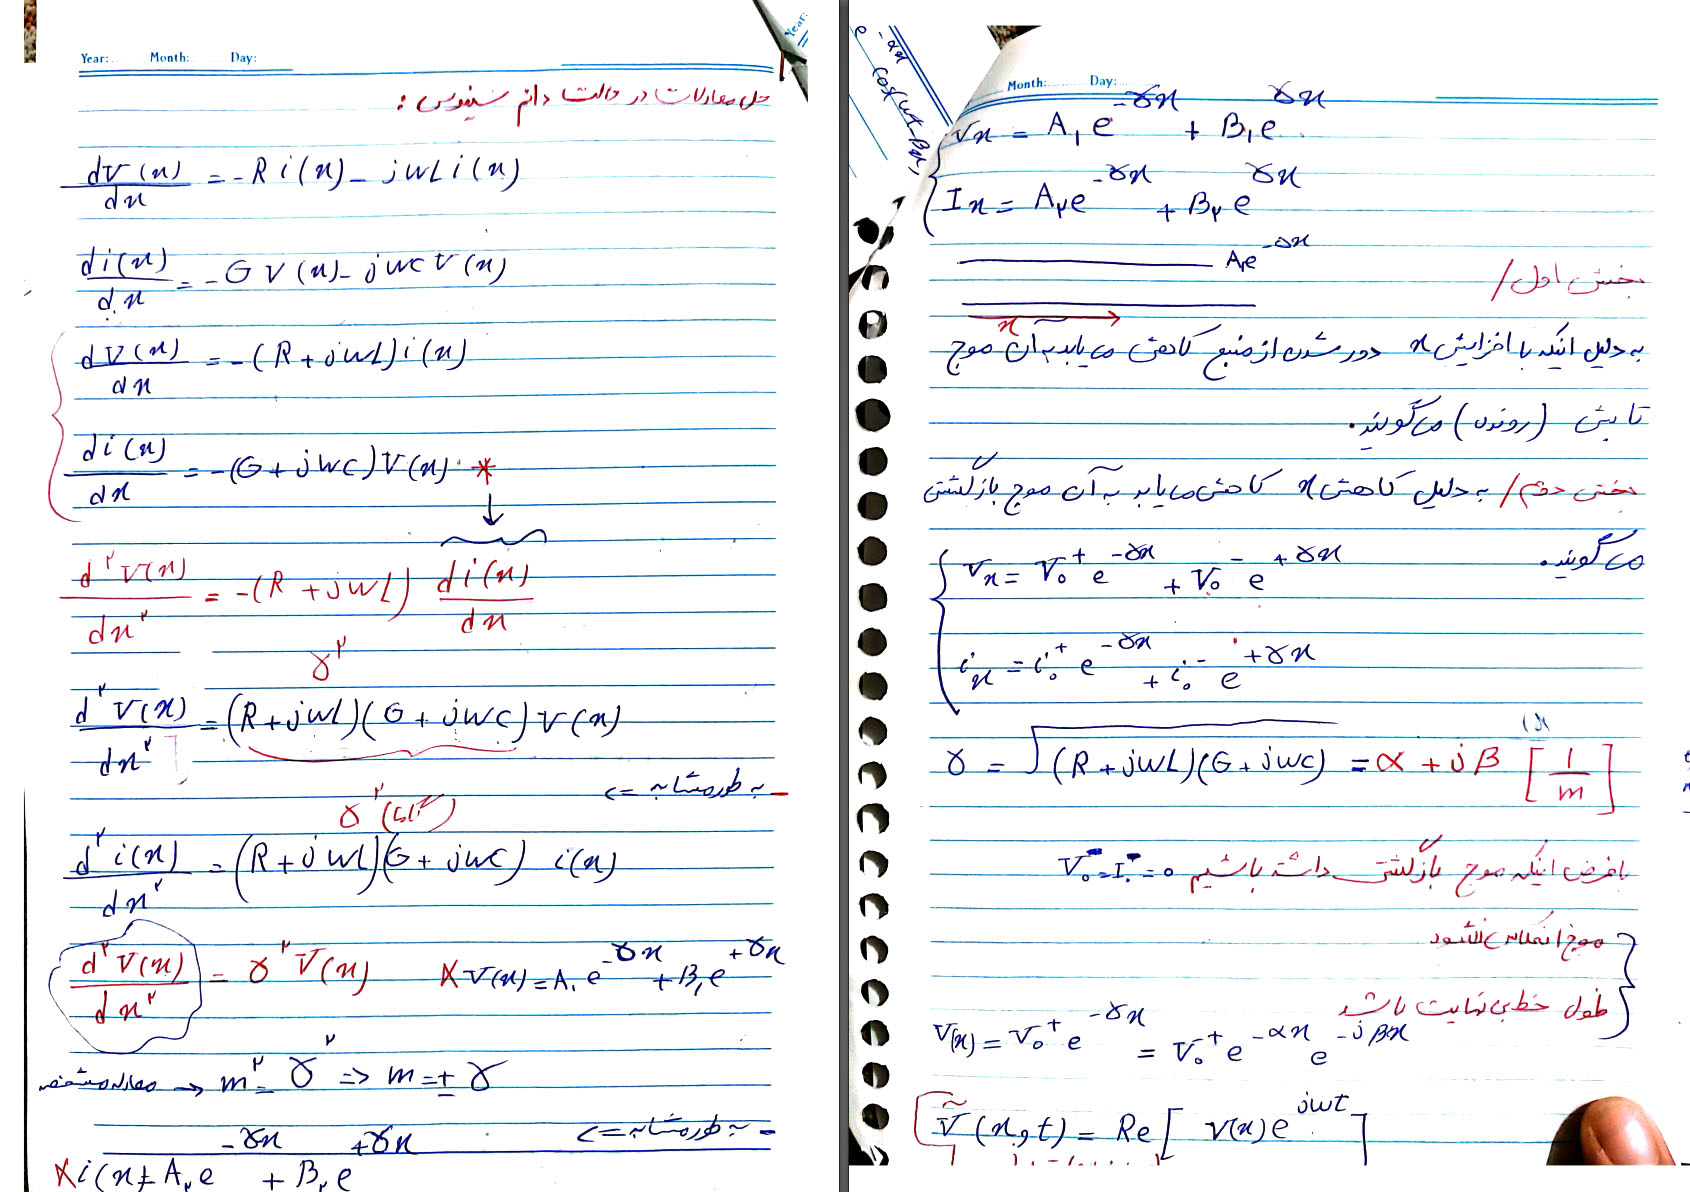 Year: Month: Day:
حل معادلات در حالت دائم سینوسی :
dV(x)/dx = -R i(x) - jωL i(x)
di(x)/dx = -G V(x) - jωC V(x)
dV(x)/dx = -(R + jωL) i(x)
di(x)/dx = -(G + jωC) V(x) *
d²V(x)/dx² = -(R + jωL) di(x)/dx
γ²
d²V(x)/dx² = (R + jωL)(G + jωC) V(x)
- به طور مشابه =>
γ² (گاما)
d²i(x)/dx² = (R + jωL)(G + jωC) i(x)
d²V(x)/dx² = γ² V(x) * V(x) = A₁ e^-γx + B₁ e^+γx
معادله مشخصه → m² = γ² => m = ± γ
- به طور مشابه =>
* i(x) = A₂ e^-γx + B₂ e^+γx
Year:
e^-αx cos(ωt - βx)
Month: Day:
Vx = A₁ e^-γx + B₁ e^γx
Ix = A₂ e^-γx + B₂ e^γx
A₁e^-γx
بخش اول /
x
به دلیل اینکه با افزایش x دور شدن از منبع کاهش می یابد به آن موج
تابش (رونده) می گویند.
بخش دوم / به دلیل کاهش x کاهش می یابد به آن موج بازگشتی
می گویند.
Vx = V₀⁺ e^-γx + V₀⁻ e^+γx
ix = i₀⁺ e^-γx + i₀⁻ e^+γx
γ = √(R + jωL)(G + jωC) = α + jβ [1/m]
با فرض اینکه موج بازگشتی داشته باشیم V₀⁻ = I₀⁻ = 0
موج انعکاس نشود
طول خط بی نهایت باشد
V(x) = V₀⁺ e^-γx = V₀⁺ e^-αx e^-jβx
Ṽ(x,t) = Re [ V(x) e^jωt ]